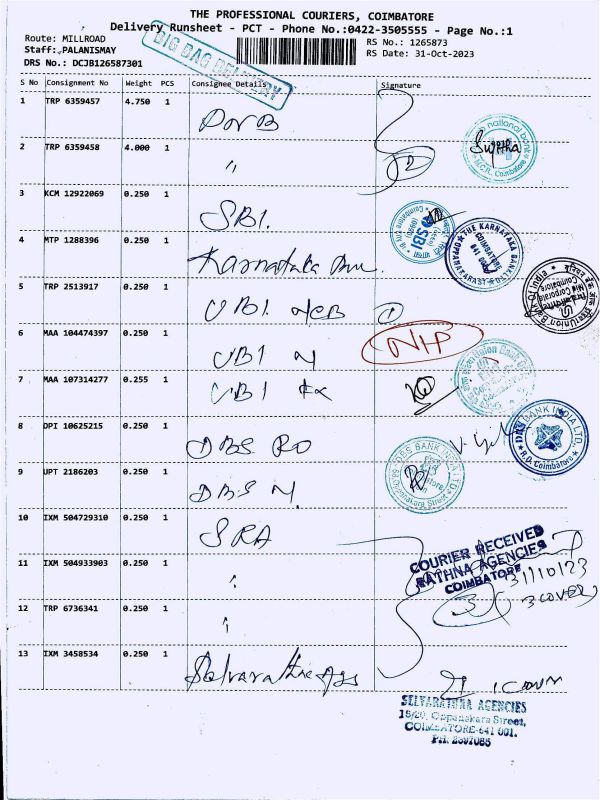 THE PROFESSIONAL COURIERS, COIMBATORE
Delivery Runsheet - PCT - Phone No.:0422-3505555 - Page No.:1
Route: MILLROAD
Staff: PALANISMAY
DRS No.: DCJB126587301
BIG BAG DELIVERY
RS No.: 1265873
RS Date: 31-Oct-2023
S No Consignment No Weight PCS Consignee Details Signature
1 TRP 6359457 4.750 1
2 TRP 6359458 4.000 1 "
Sujitha
3 KCM 12922069 0.250 1 SBI.
SBI
4 MTP 1288396 0.250 1 Karnataka
THE KARNATAKA BANK
COIMBATORE
5 TRP 2513917 0.250 1 UBI
6 MAA 104474397 0.250 1 UBI N
7 MAA 107314277 0.255 1 UBI
8 DPI 10625215 0.250 1 DBS RO
DBS BANK INDIA LTD.
R.O. Coimbatore
9 UPT 2186203 0.250 1 DBS N.
DBS BANK INDIA LTD
10 IXM 504729310 0.250 1 SRA
COURIER RECEIVED
RATHNA AGENCIES
COIMBATORE
31/10/23
3 COVER
11 IXM 504933903 0.250 1 "
12 TRP 6736341 0.250 1 "
13 IXM 3458534 0.250 1
SELVARATHNA AGENCIES
18/20, Oppanakara Street,
COIMBATORE-641 001.
PH: 2397085